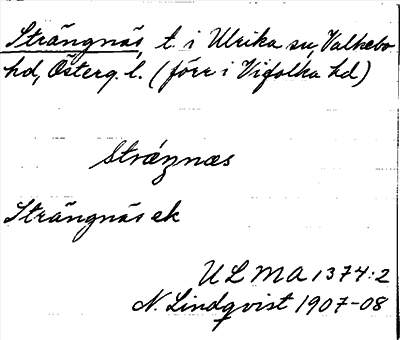 Strängnäs, t. i Ulrika sn, Valkebo
hd, Österg. l. (förr i Vifolka hd)
Stræŋnæs
Strängnäs ek
ULMA 1374:2
N. Lindqvist 1907-08